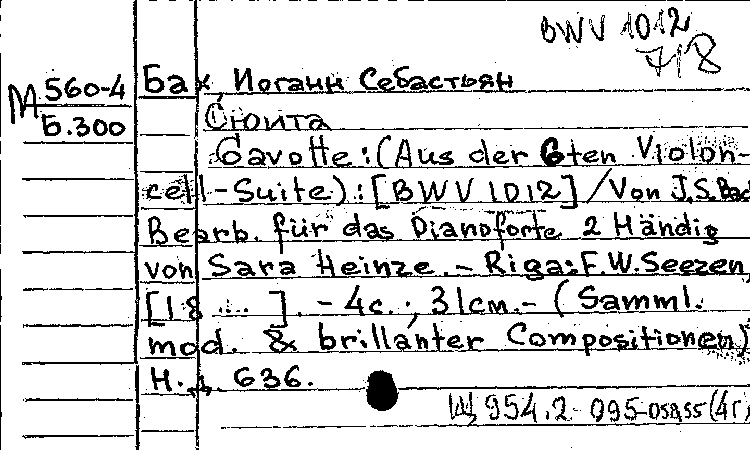 BWV 1012
718
М 560-4
Б.300
Бах, Иоганн Себастьян
Сюита
Gavotte:(Aus der 6ten Violon-
cell-Suite):[BWV 1012]/Von J.S.Bac
Bearb. für das Pianoforte 2 Händig
von Sara Heinze.- Riga:F.W.Seezen,
[18 ... ]. - 4с.; 31cm.- (Samml.
mod. & brillanter Compositionen)
Н.д. 636.
954.2-095